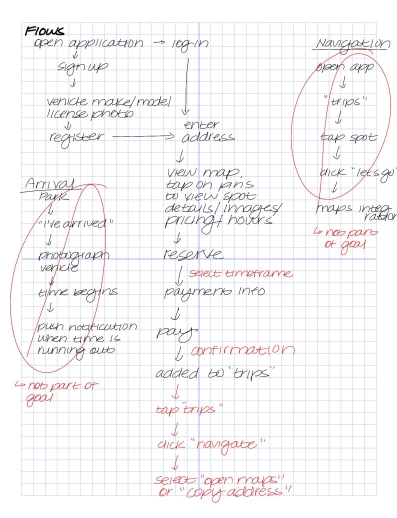 Flows
open application → log-in
sign up
vehicle make/model
license photo
register → enter
address
view map,
tap on pins
to view spot
details/images/
pricing/hours
reserve
select timeframe
payment info
pay
confirmation
added to "trips"
tap "trips"
click "navigate"
select "open maps"
or "copy address"
Navigation
open app
"trips"
tap spot
click "lets go"
maps integ
ration
↳ not part
of goal
Arrival
Park
"I've arrived"
photograph
vehicle
time begins
push notification
when time is
running out
↳ not part of
goal